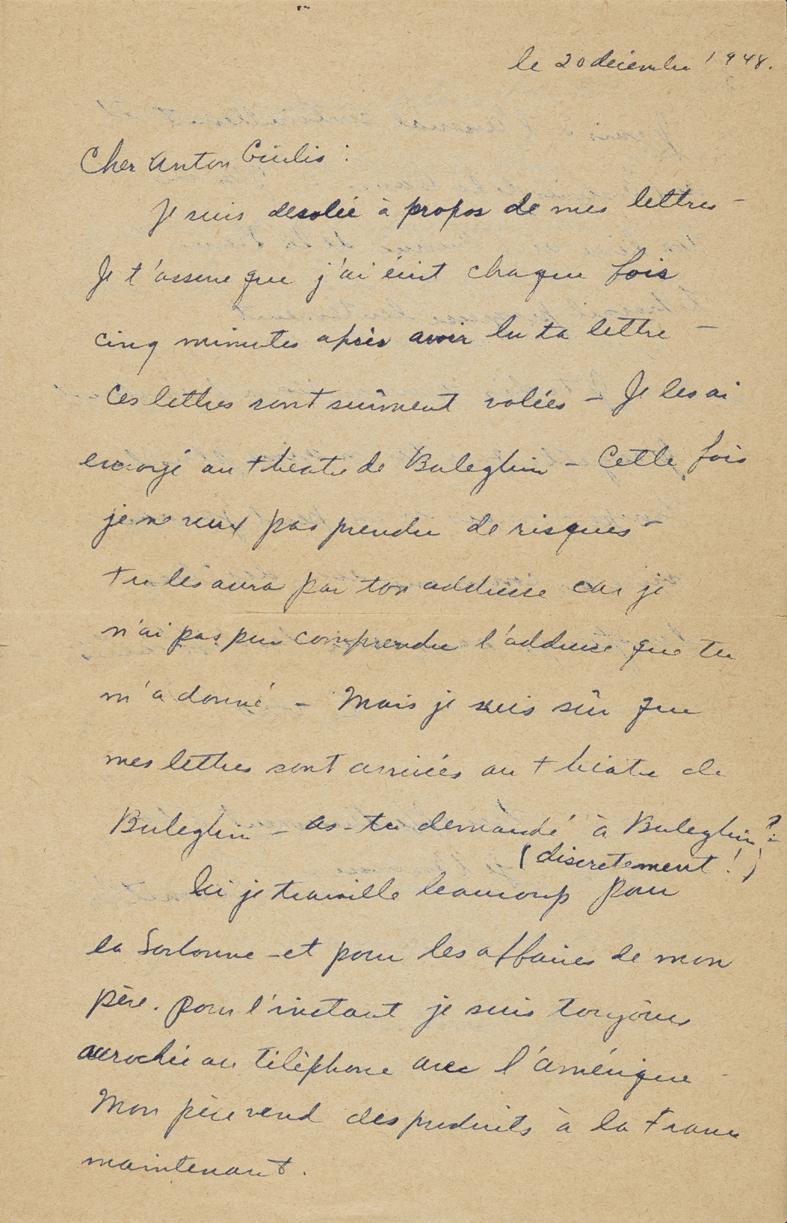 le 20 décembre 1948.
Cher Anton Giulis :
Je suis desolée à propos de mes lettres -
Je t'assure que j'ai écrit chaque fois
cinq minutes après avoir lu ta lettre -
Ces lettres sont surêment volées - Je les ai
envoyé au théatre de Buleghin - Cette fois
je ne veux pas prendre de risques -
tu les aura par ton addresse car je
n'ai pas pu comprendre l'addresse que tu
m'a donné - Mais je suis sûr que
mes lettres sont arrivées au théatre de
Buleghin - as-tu demandé à Buleghin ?
(discretement !)
Ici je travaille beaucoup pour
la Sorbonne - et pour les affaires de mon
père. pour l'instant je suis toujours
accrochée au téléphone avec l'amérique
Mon père vend des produits à la France
maintenant.